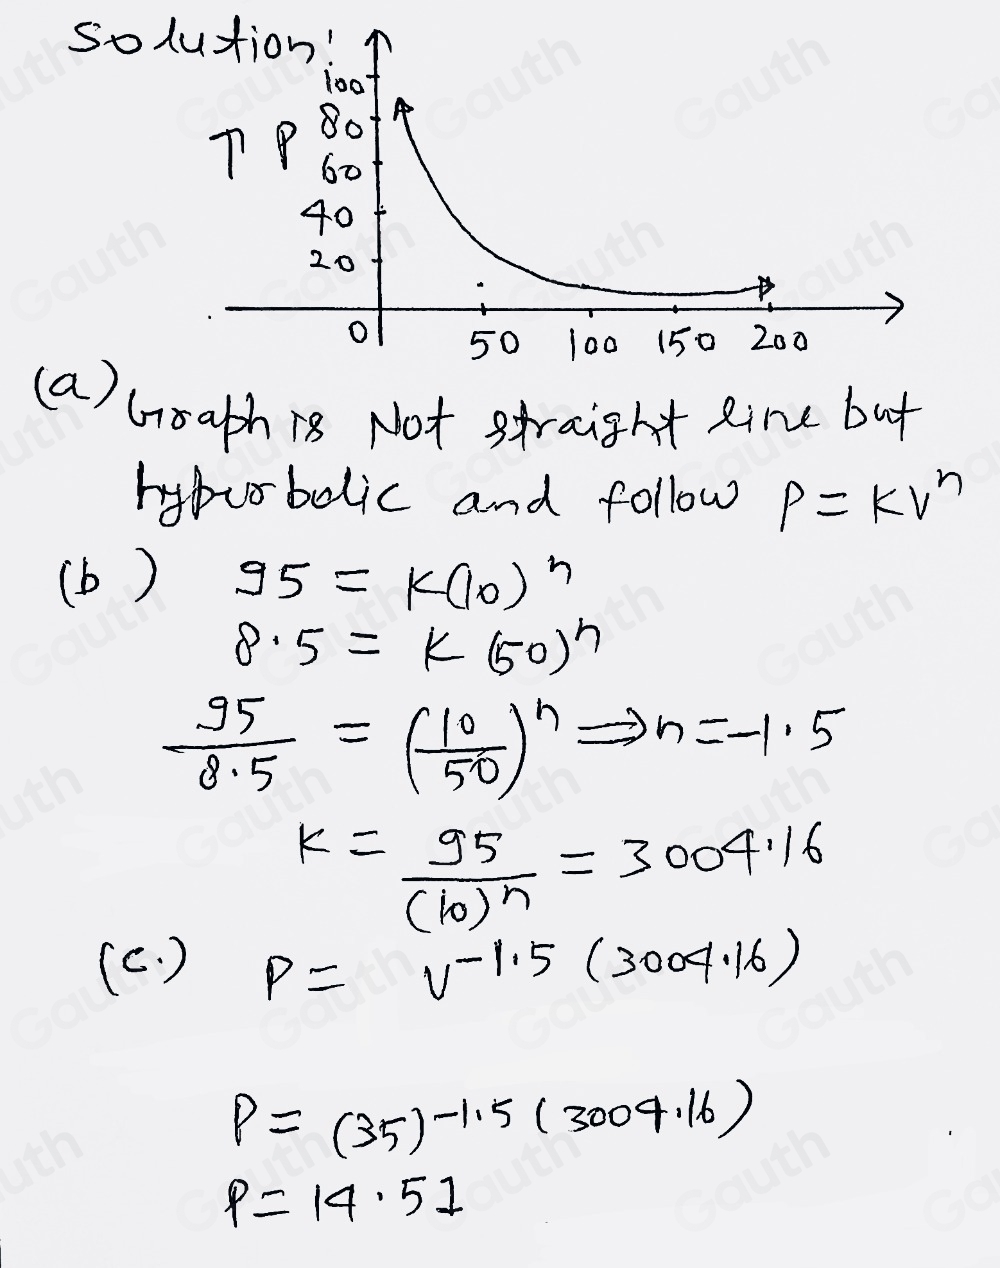 Solution:
100
↑ P 80
60
40
20
0 50 100 150 200
(a) Graph is Not straight line but
hyperbolic and follow P = KVⁿ
(b) 95 = K(10)ⁿ
8.5 = K (50)ⁿ
95/8.5 = (10/50)ⁿ ⇒ n = -1.5
K = 95/(10)ⁿ = 3004.16
(c.) P = V^-1.5 (3004.16)
P = (35)^-1.5 (3004.16)
P = 14.51